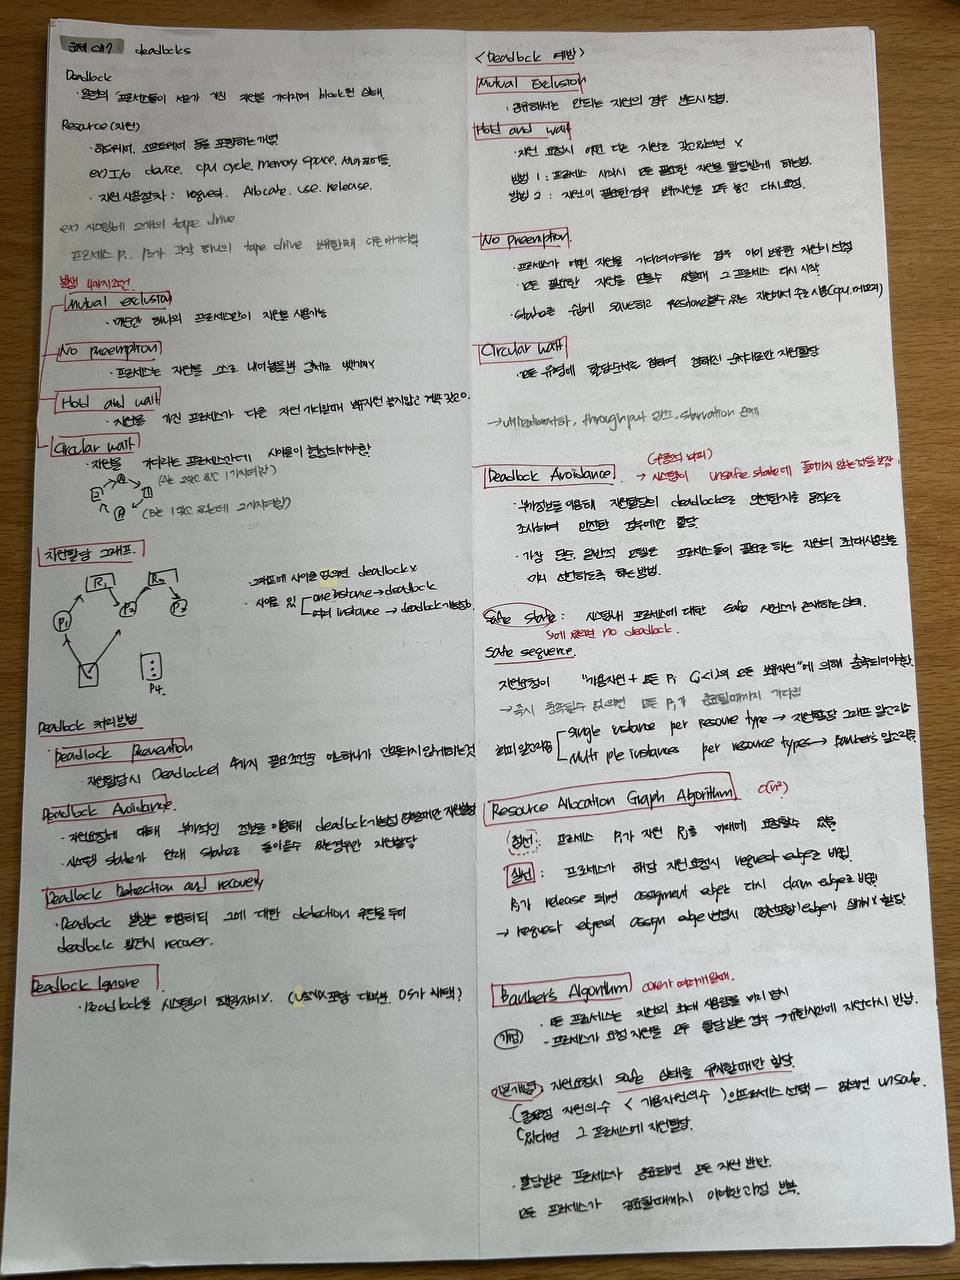 deadlocks
Deadlock
· 일련의 프로세스들이 서로가 가진 자원을 기다리며 block된 상태.
Resource (자원)
· 하드웨어, 소프트웨어 등을 포함하는 개념
ex) I/O device, cpu cycle, memory space, 세마포어등.
· 자원 사용절차 : request, Allocate, use, release.
ex) 시스템에 2개의 tape drive
프로세스 P₁, P₂가 각각 하나의 tape drive 보유한채 다른 하나 기다림
발생 4가지조건
Mutual exclusion
· 매순간 하나의 프로세스만이 자원을 사용가능
No preemption
· 프로세스는 자원을 스스로 내어놓을뿐 강제로 뺏기지 x
Hold and wait
· 자원을 가진 프로세스가 다른 자원 기다릴때 보유자원 놓지않고 계속 갖고 o.
Circular wait
· 자원을 기다리는 프로세스간에 사이클이 형성되어야함
자원할당 그래프.
R₁ R₂
P₁ P₂ P₃
P4.
· 그래프에 사이클 없으면 deadlock x
· 사이클 있 one instance → deadlock
여러 instance → deadlock 가능성 o
Deadlock 처리방법
Deadlock Prevention
· 자원할당시 Deadlock의 4가지 필요조건중 어느하나가 만족되지 않게하는것
Deadlock Avoidance.
· 자원요청에 대해 부가적인 정보를 이용해 deadlock 가능성 없을때만 자원할당
· 시스템 state가 원래 state로 돌아올수 있는경우만 자원할당
Deadlock Detection and recovery
· Deadlock 발생은 허용하되 그에 대한 detection 루틴을 두어
deadlock 발견시 recover.
Deadlock Ignore
· Deadlock을 시스템이 책임지지x. (UNIX 포함 대부분 OS가 채택)
<Deadlock 예방>
Mutual Exclusion
· 공유해서는 안되는 자원의 경우 반드시 성립.
Hold and wait
· 자원 요청시 어떤 다른 자원도 갖고있으면 x
방법 1 : 프로세스 시작시 모든 필요한 자원을 할당받게 하는방법.
방법 2 : 자원이 필요한경우 보유자원을 모두 놓고 다시요청.
No Preemption.
· 프로세스가 어떤 자원을 기다려야하는 경우 이미 보유한 자원이 선점
· 모든 필요한 자원을 얻을수 있을때 그 프로세스 다시 시작
· State를 쉽게 save하고 restore할수 있는 자원에서 주로 사용 (cpu, 메모리)
Circular wait
· 모든 유형에 할당순서를 정하여 정해진 순서대로만 자원할당
→ utilization 저하, throughput 감소, starvation 문제
Deadlock Avoidance. → 시스템이 unsafe state에 들어가지 않는것을 보장
· 부가정보를 이용해 자원할당이 deadlock으로 안전한지를 동적으로
조사하여 안전한 경우에만 할당.
· 가장 단순, 일반적 모델은 프로세스들이 필요로 하는 자원의 최대사용량을
미리 선언하도록 하는방법.
Safe state : 시스템내 프로세스에 대한 safe 시퀀스가 존재하는 상태.
S에 있으면 no deadlock.
Safe sequence.
자원요청이 "가용자원 + 모든 Pⱼ (j<i)의 모든 보유자원"에 의해 충족되어야함.
→ 즉시 충족될수 없으면 모든 Pⱼ가 종료될때까지 기다림
회피 알고리즘 Single instance per resource type → 자원할당 그래프 알고리즘
Multiple instances per resource types → Banker's 알고리즘
Resource Allocation Graph Algorithm O(n²)
점선 : 프로세스 Pᵢ가 자원 Rⱼ를 미래에 요청할수 있음
실선 : 프로세스가 해당 자원요청시 request edge로 바뀜.
Rⱼ가 release 되면 assignment edge는 다시 claim edge로 바뀜
→ request edge의 assign edge 변경시 (점선포함) cycle이 생기지 x 할당
Banker's Algorithm
개념
· 모든 프로세스는 자원의 최대 사용량을 미리 명시
- 프로세스가 요청 자원을 모두 할당받은 경우 → 유한시간에 자원다시 반납.
기본개념. 자원요청시 safe 상태를 유지할때만 할당.
(총요청 자원의수 < 가용자원의수) 인프로세스 선택 – 없으면 unsafe.
(있다면 그 프로세스에 자원할당.
· 할당받은 프로세스가 종료되면 모든 자원 반납.
모든 프로세스가 종료될때까지 이러한과정 반복.